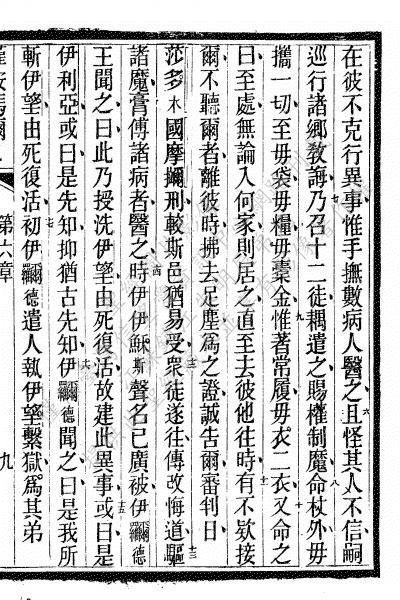 在彼不克行異事惟手撫數病人醫之且怪其人不信嗣
巡行諸鄉教誨乃召十二徒耦遣之賜權制魔命杖外毋
攜一切至毋袋毋糧毋槖金惟著常履毋衣二衣又命之
曰至處無論入何家則居之直至去彼他往時有不欵接
爾不聽爾者離彼時拂去足塵為之證誠吿爾審判日
莎多木國摩擸刑較斯邑猶易受衆徒遂往傳改悔道驅
諸魔膏傅諸病者醫之時伊伊穌斯聲名已廣被伊爾德
王聞之曰此乃授洗伊望由死復活故建此異事或曰是
伊利亞或曰是先知抑猶古先知伊爾德聞之曰是我所
斬伊望由死復活初伊爾德遣人執伊望繫獄為其弟
第六章
九